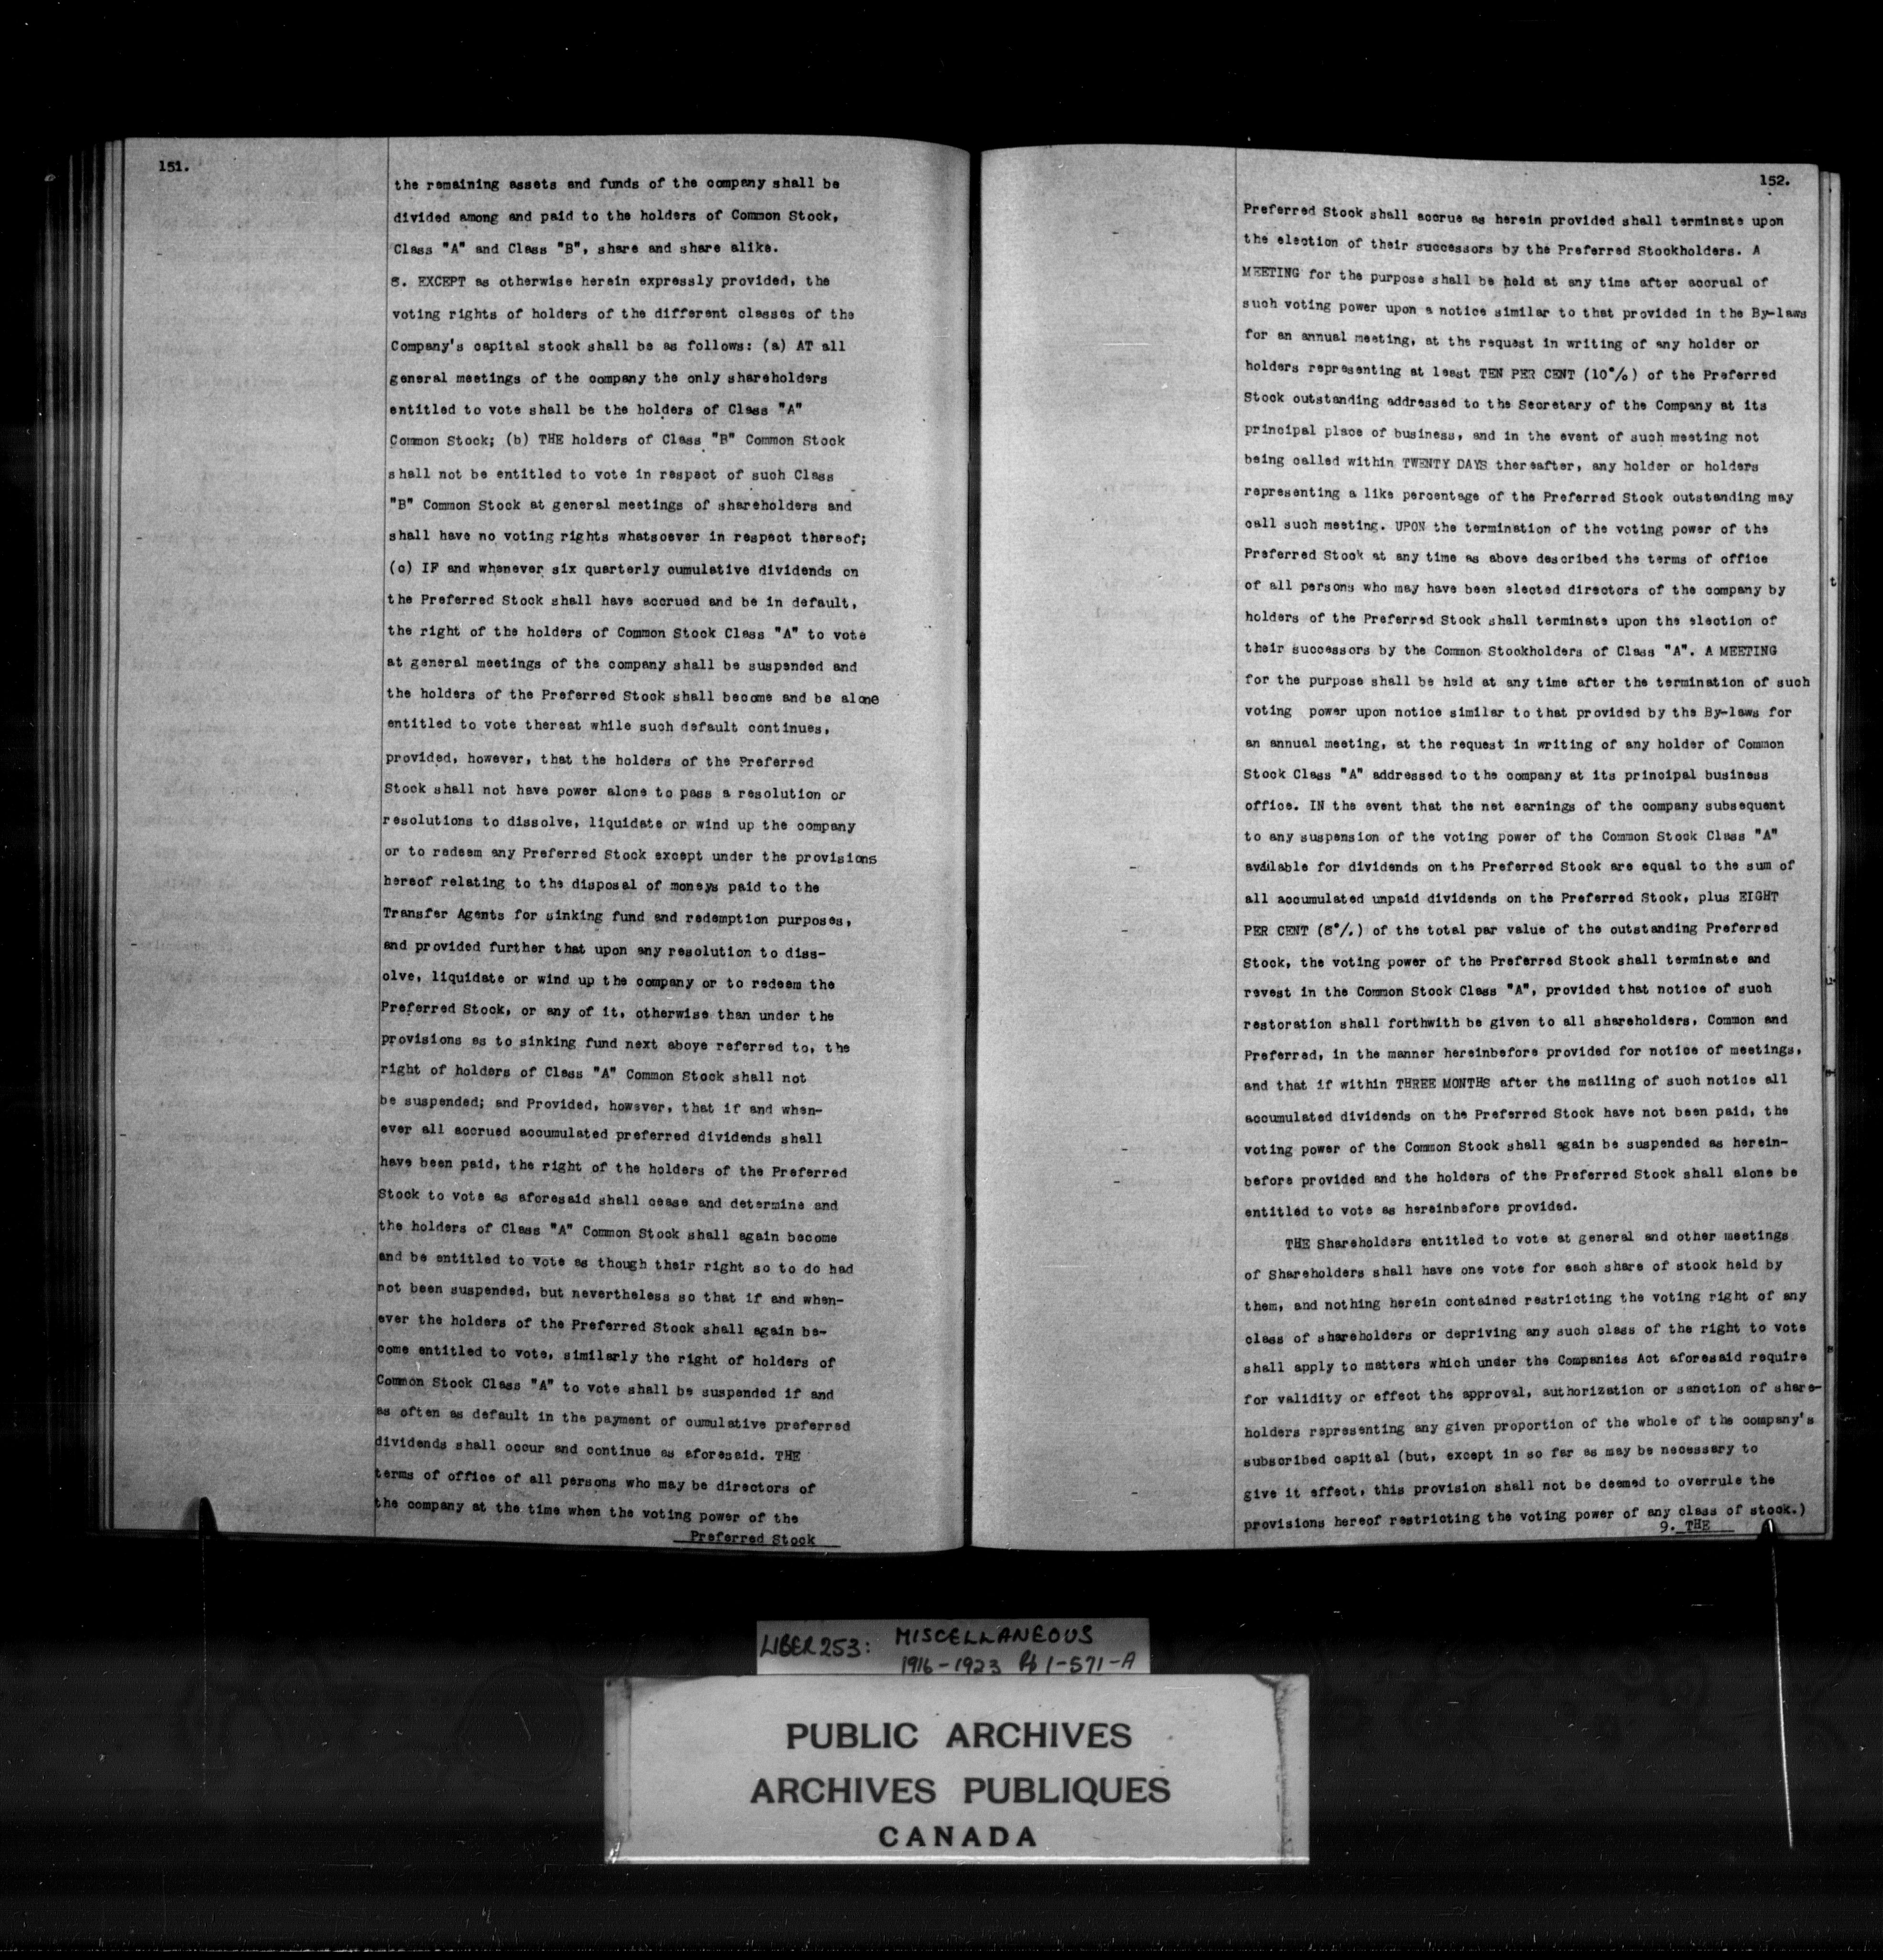 151.
the remaining assets and funds of the company shall be
divided among and paid to the holders of Common Stock,
Class "A" and Class "B", share and share alike.
8. EXCEPT as otherwise herein expressly provided, the
voting rights of holders of the different classes of the
Company's capital stock shall be as follows: (a) AT all
general meetings of the company the only shareholders
entitled to vote shall be the holders of Class "A"
Common Stock; (b) THE holders of Class "B" Common Stock
shall not be entitled to vote in respect of such Class
"B" Common Stock at general meetings of shareholders and
shall have no voting rights whatsoever in respect thereof;
(c) IF and whenever six quarterly cumulative dividends on
the Preferred Stock shall have accrued and be in default,
the right of the holders of Common Stock Class "A" to vote
at general meetings of the company shall be suspended and
the holders of the Preferred Stock shall become and be alone
entitled to vote thereat while such default continues,
provided, however, that the holders of the Preferred
Stock shall not have power alone to pass a resolution or
resolutions to dissolve, liquidate or wind up the company
or to redeem any Preferred Stock except under the provisions
hereof relating to the disposal of moneys paid to the
Transfer Agents for sinking fund and redemption purposes,
and provided further that upon any resolution to diss-
olve, liquidate or wind up the company or to redeem the
Preferred Stock, or any of it, otherwise than under the
provisions as to sinking fund next above referred to, the
right of holders of Class "A" Common Stock shall not
be suspended; and Provided, however, that if and when-
ever all accrued accumulated preferred dividends shall
have been paid, the right of the holders of the Preferred
Stock to vote as aforesaid shall cease and determine and
the holders of Class "A" Common Stock shall again become
and be entitled to vote as though their right so to do had
not been suspended, but nevertheless so that if and when-
ever the holders of the Preferred Stock shall again be-
come entitled to vote, similarly the right of holders of
Common Stock Class "A" to vote shall be suspended if and
as often as default in the payment of cumulative preferred
dividends shall occur and continue as aforesaid. THE
terms of office of all persons who may be directors of
the company at the time when the voting power of the
Preferred Stock
152.
Preferred Stock shall accrue as herein provided shall terminate upon
the election of their successors by the Preferred Stockholders. A
MEETING for the purpose shall be held at any time after accrual of
such voting power upon a notice similar to that provided in the By-laws
for an annual meeting, at the request in writing of any holder or
holders representing at least TEN PER CENT (10%) of the Preferred
Stock outstanding addressed to the Secretary of the Company at its
principal place of business, and in the event of such meeting not
being called within TWENTY DAYS thereafter, any holder or holders
representing a like percentage of the Preferred Stock outstanding may
call such meeting. UPON the termination of the voting power of the
Preferred Stock at any time as above described the terms of office
of all persons who may have been elected directors of the company by
holders of the Preferred Stock shall terminate upon the election of
their successors by the Common Stockholders of Class "A". A MEETING
for the purpose shall be held at any time after the termination of such
voting power upon notice similar to that provided by the By-laws for
an annual meeting, at the request in writing of any holder of Common
Stock Class "A" addressed to the company at its principal business
office. IN the event that the net earnings of the company subsequent
to any suspension of the voting power of the Common Stock Class "A"
available for dividends on the Preferred Stock are equal to the sum of
all accumulated unpaid dividends on the Preferred Stock, plus EIGHT
PER CENT (8%) of the total par value of the outstanding Preferred
Stock, the voting power of the Preferred Stock shall terminate and
revest in the Common Stock Class "A", provided that notice of such
restoration shall forthwith be given to all shareholders, Common and
Preferred, in the manner hereinbefore provided for notice of meetings,
and that if within THREE MONTHS after the mailing of such notice all
accumulated dividends on the Preferred Stock have not been paid, the
voting power of the Common Stock shall again be suspended as herein-
before provided and the holders of the Preferred Stock shall alone be
entitled to vote as hereinbefore provided.
THE Shareholders entitled to vote at general and other meetings
of Shareholders shall have one vote for each share of stock held by
them, and nothing herein contained restricting the voting right of any
class of shareholders or depriving any such class of the right to vote
shall apply to matters which under the Companies Act aforesaid require
for validity or effect the approval, authorization or sanction of share-
holders representing any given proportion of the whole of the company's
subscribed capital (but, except in so far as may be necessary to
give it effect, this provision shall not be deemed to overrule the
provisions hereof restricting the voting power of any class of stock.)
9. THE
LIBER 253: MISCELLANEOUS
1916-1923 Pp 1-571-A
PUBLIC ARCHIVES
ARCHIVES PUBLIQUES
CANADA